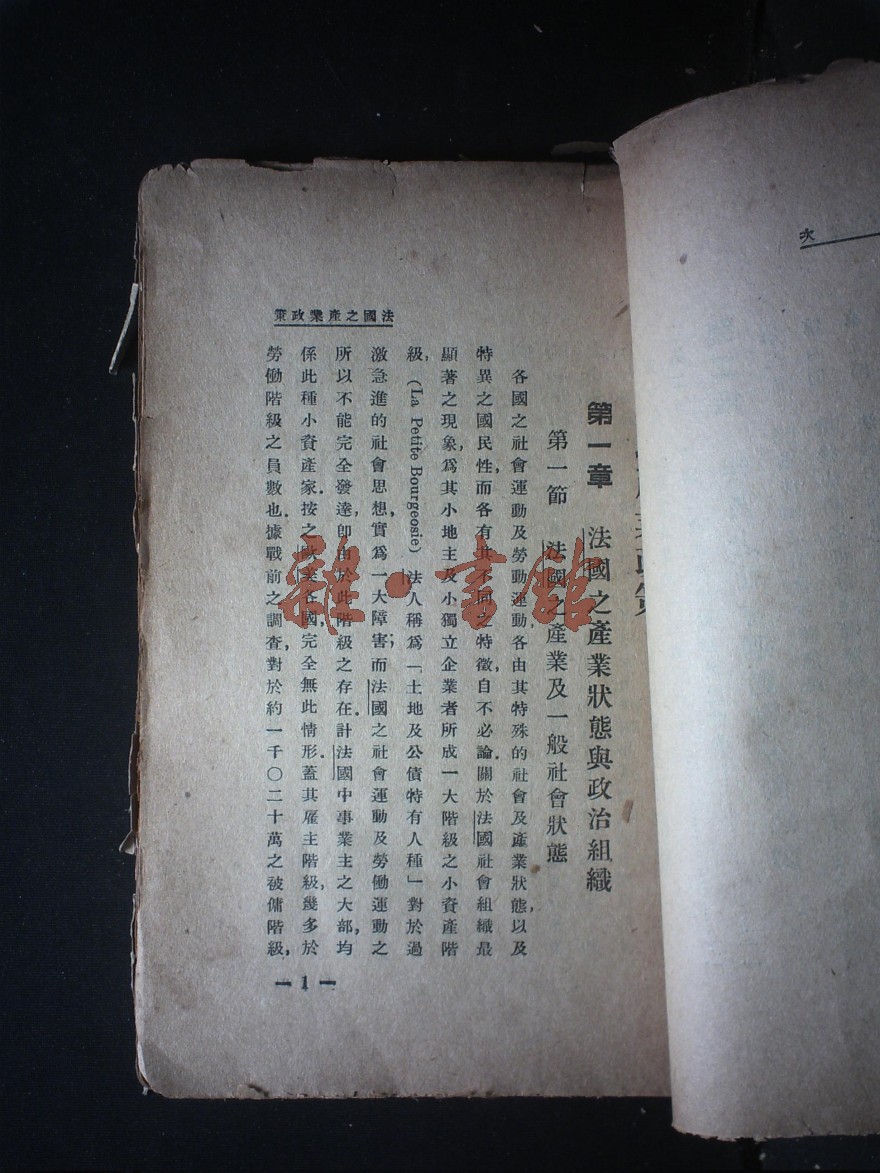 次
法國之產業政策
業政策
第一章 法國之產業狀態與政治組織
第一節 法國之產業及一般社會狀態
各國之社會運動及勞動運動各由其特殊的社會及產業狀態,以及
特異之國民性,而各有其不同之特徵,自不必論.關於法國社會組織最
顯著之現象,爲其小地主及小獨立企業者所成一大階級之小資產階
級,(La Petite Bourgeosie)法人稱爲「土地及公債特有人種」對於過
激急進的社會思想,實爲一大障害;而法國之社會運動及勞働運動之
所以不能完全發達,卽由於此階級之存在.計法國中事業主之大部,均
係此種小資產家.按之歐美各國,完全無此情形.蓋其雇主階級,幾多於
勞働階級之員數也.據戰前之調查,對於約一千〇二十萬之被傭階級,
— 1 —
雜·書館